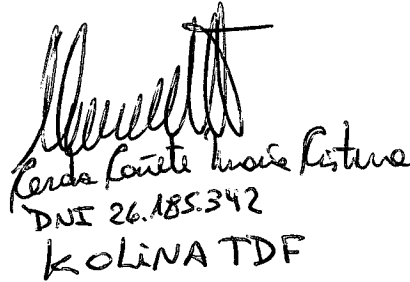 Cerda Cañete María Cristina
DNI 26.185.342
KOLINA TDF